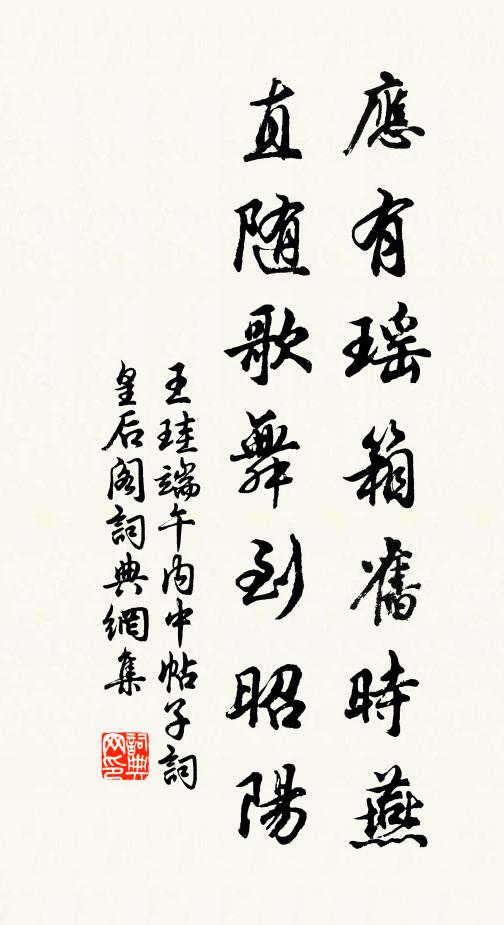 應有瑶箱舊時燕
直随歌舞到昭陽
王珪端午内中帖子詞
皇后阁詞典網集
詞典网印